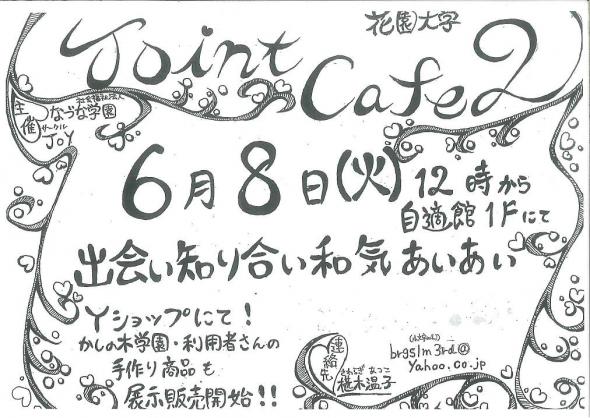 花園大学
Joint
Cafe 2
主催
社会福祉法人
なづな学園
サークル
JOY
6月8日(火) 12時から
自適館1Fにて
出会い知り合い和気あいあい
Yショップにて!
かしの木学園・利用者さんの
手作り商品も
展示販売開始!!
連絡先
木温子
yahoo.co.jp